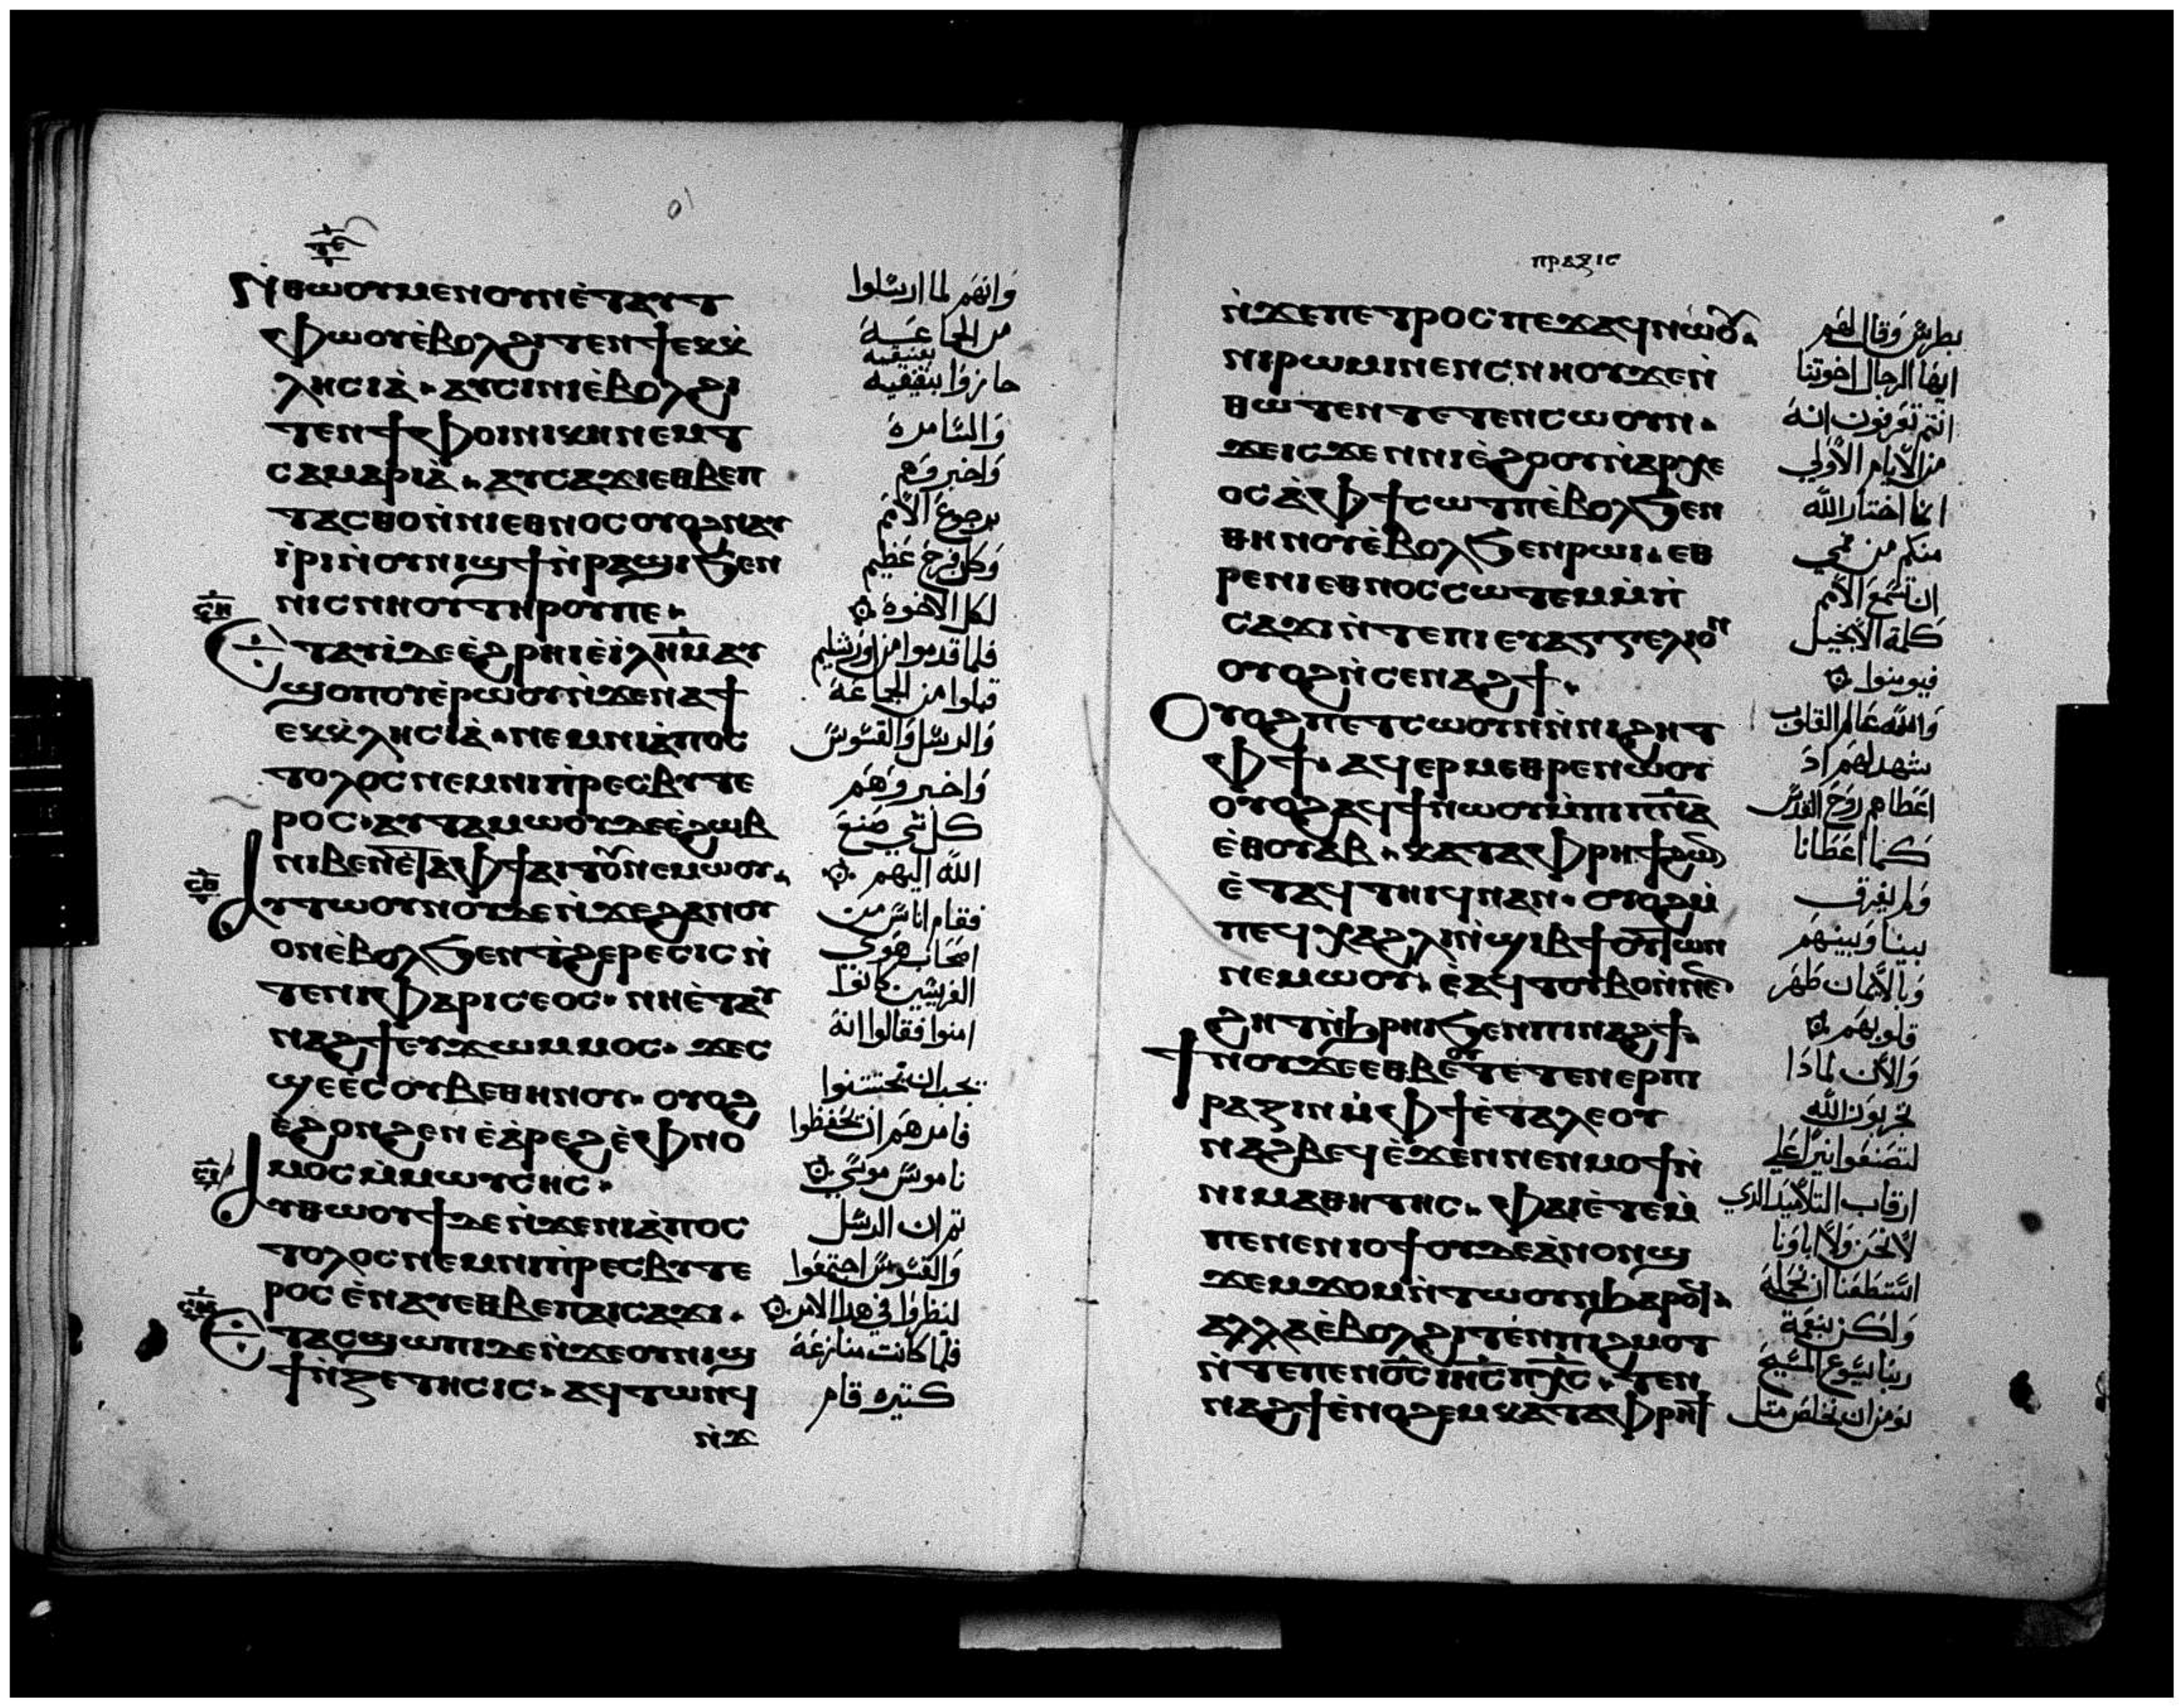 ⲛ̇ⲑⲱⲟⲩⲙⲉⲛⲟⲩⲛⲉ̇ⲧⲁⲩⲧ
ⲫⲱⲟⲩⲉ̇ⲃⲟⲗϩⲓⲧⲉⲛϯⲉⲕⲕ̇
ⲗⲏⲥⲓⲁ̇ ⲁⲩⲥⲓⲛⲓⲉ̇ⲃⲟⲗϩⲓ
ⲧⲉⲛϯⲫⲟⲓⲛⲓⲕⲏⲛⲉⲙⲧ
ⲥⲁⲙⲁⲣⲓⲁ̇ ⲁⲩⲥⲁϫⲓⲉⲑⲃⲉⲡ
ⲧⲁⲥⲑⲟⲛ̇ⲛⲓⲉⲑⲛⲟⲥⲟⲩⲟϩⲛⲁⲩ
ⲓ̇ⲣⲓⲛ̇ⲟⲩⲛⲓϣϯⲛ̇ⲣⲁϣⲓϧⲉⲛ
ⲛⲓⲥⲛⲏⲟⲩⲧⲏⲣⲟⲩⲡⲉ
ⲉⲧⲁⲩⲓ̇ⲇⲉⲉ̇ϩⲣⲏⲓⲉ̇ⲓ̇ⲗⲏ̅ⲙ̅ⲁⲩ
ϣⲟⲡⲟⲩⲉ̇ⲣⲱⲟⲩⲛ̇ϫⲉⲛⲁϯ
ⲉⲕⲕ̇ⲗⲏⲥⲓⲁ̇ ⲛⲉⲙⲛⲓⲁ̇ⲡⲟⲥ
ⲧⲟⲗⲟⲥⲛⲉⲙⲛⲓⲡ̇ⲣⲉⲥⲃⲩⲧⲉ
ⲣⲟⲥ ⲁⲩⲧⲁⲙⲱⲟⲩⲇⲉⲉ̇ϩⲱⲃ
ⲛⲓⲃⲉⲛⲉ̇ⲧⲁⲫϯⲁⲓⲧⲟⲩⲛⲉⲙⲱⲟⲩ
ⲁⲩⲧⲱⲟⲩⲛⲟⲩⲇⲉⲛ̇ϫⲉϩⲁⲛⲟⲩ
ⲟⲛⲉ̇ⲃⲟⲗϧⲉⲛϯϩⲉⲣⲉⲥⲓⲥⲛ̇
ⲧⲉⲛⲓⲫⲁⲣⲓⲥⲉⲟⲥ ⲛⲏⲉ̇ⲧⲁⲩ
ⲛⲁϩϯⲉⲩϫⲱⲙⲙⲟⲥ ϫⲉⲥ
ϣⲉⲉ̇ⲥⲟⲩⲃⲉⲑⲏⲛⲟⲩ ⲟⲩⲟϩ
ⲉ̇ϩⲟⲛϩⲉⲛⲉ̇ⲁ̇ⲣⲉϩⲉ̇ⲫⲛⲟ
ⲙⲟⲥⲙ̇ⲙⲱⲩⲥⲏⲥ
ⲁⲩⲑⲱⲟⲩϯⲇⲉⲛ̇ϫⲉⲛⲓⲁ̇ⲡⲟⲥ
ⲧⲟⲗⲟⲥⲛⲉⲙⲛⲓⲡ̇ⲣⲉⲥⲃⲩⲧⲉ
ⲣⲟⲥ ⲉ̇ⲛⲁⲩⲉⲑⲃⲉⲡⲁⲓⲥⲁϫⲓ
ⲉⲧⲁⲥϣⲱⲡⲓⲇⲉⲛ̇ϫⲉⲟⲩⲛⲓϣ
ϯⲛ̇ⲍⲉⲧⲏⲥⲓⲥ ⲁϥⲧⲱⲛϥ
ⲛ̇ϫ
وانهم لما ارسلوا
من الجماعه
جازوا بفينيقيه
والسامره
واخبروهم
برجوع الامم
وكل فرح عظيم
لكل الاخوه
فلما قدموا من اورشليم
قبلوا من الجماعه
والرسل والقسوس
واخبروهم
كل شي صنع
الله اليهم
فقام اناس من
اصحاب هوي
الفريسين كانوا
امنوا فقالوا انه
يجب ان تختتنوا
فامرهم ان تحفظوا
ناموس موسي
ثم ان الرسل
والقسوس اجتمعوا
لينظروا في هدا الامر
فلما كانت منازعه
كتيره قام
ⲡⲣⲁⲝⲓⲥ
ⲛ̇ϫⲉⲡⲉⲧⲣⲟⲥⲡⲉϫⲁϥⲛⲱⲟⲩ
ⲛⲓⲣⲱⲙⲓⲛⲉⲛⲥⲛⲏⲟⲩϫⲉⲛ̇
ⲑⲱⲧⲉⲛⲧⲉⲧⲉⲛⲥⲱⲟⲩⲛ
ϫⲉⲓⲥϫⲉⲛⲛⲓⲉ̇ϩⲟⲟⲩⲛ̇ⲁⲣⲭⲉ
ⲟⲥⲁ̇ⲫϯⲥⲱⲧⲡⲉ̇ⲃⲟⲗϧⲉⲛ
ⲑⲏⲛⲟⲩⲉ̇ⲃⲟⲗϧⲉⲛⲣⲱⲓ ⲉⲑ
ⲣⲉⲛⲓⲉⲑⲛⲟⲥⲥⲱⲧⲉⲙⲙ̇ⲡ
ⲥⲁϫⲓⲛ̇ⲧⲉⲡⲓⲉⲩⲁⲅⲅⲉⲗⲓⲟⲛ
ⲟⲩⲟϩⲛ̇ⲥⲉⲛⲁϩϯ
ⲟⲩⲟϩⲡⲉⲧⲥⲱⲟⲩⲛⲛ̇ⲛⲓϩⲏⲧ
ⲫϯ ⲁϥⲉⲣⲙⲉⲑⲣⲉⲛⲱⲟⲩ
ⲟⲩⲟϩⲁϥϯⲛⲱⲟⲩⲙ̇ⲡⲓⲡ̅ⲛ̅ⲁ̅
ⲉ̇ⲑⲟⲩⲁⲃ ⲕⲁⲧⲁⲫⲣⲏϯϩⲱ
ⲉ̇ⲧⲁϥⲧⲏⲓϥⲛⲁⲛ ⲟⲩⲟϩⲙ̇
ⲡⲉϥⲭⲁϩⲗⲓⲛ̇ϣⲓⲃϯⲟⲩⲧⲱⲛ
ⲛⲉⲙⲱⲟⲩ ⲉ̇ⲁϥⲧⲟⲩⲃⲟⲛ̇ⲛⲟⲩ
ϩⲏⲧⲛ̇ϧⲣⲏⲓϧⲉⲛⲡⲓⲛⲁϩϯ
ϯⲛⲟⲩϫⲉⲉⲑⲃⲉⲟⲩⲧⲉⲧⲉⲛⲉⲣⲡⲓ
ⲣⲁⲍⲓⲛⲙ̇ⲫϯⲉ̇ⲧⲁⲗⲉⲟⲩ
ⲛⲁϩⲃⲉϥⲉ̇ϫⲉⲛⲛⲉⲛⲙⲟϯⲛ̇
ⲛⲓⲙⲁⲑⲏⲧⲏⲥ ⲫⲁⲓⲉ̇ⲧⲉⲙ̇
ⲡⲉⲛⲉⲛⲓⲟϯⲟⲩⲇⲉⲁ̇ⲛⲟⲛϣ
ϫⲉⲙϫⲟⲙⲛ̇ⲧⲱⲟⲩⲛϧⲁⲣⲟϥ
ⲁⲗⲗⲁⲉ̇ⲃⲟⲗϩⲓⲧⲉⲛⲡⲓϩⲙⲟⲧ
ⲛ̇ⲧⲉⲡⲉⲛⲟ̅ⲥ̅ⲓⲏ̅ⲥ̅ⲡⲭ̅ⲥ̅ ⲧⲉⲛ
ⲛⲁϩϯⲉ̇ⲛⲟϩⲉⲙⲕⲁⲧⲁⲫⲣⲏϯ
بطرس وقال لهم
ايها الرجال اخوتنا
انتم تعرفون انه
من الايام الاولي
انما اختار الله
منكم من فمي
ان تسمع الامم
كلمة الانجيل
فيومنوا
والله عالم القلوب
شهد لهم اد
اعطاهم روح القدس
كما اعطانا
ولم يفرق
بيننا وبينهم
وبالايمان طهر
قلوبهم
والان لمادا
تجربون الله
لتضعوا نيرا علي
ارقاب التلاميد الدي
لا نحن ولا اباونا
استطعنا ان نحمله
ولكن بنعمة
ربنا يسوع المسيح
نومن ان نخلص متل